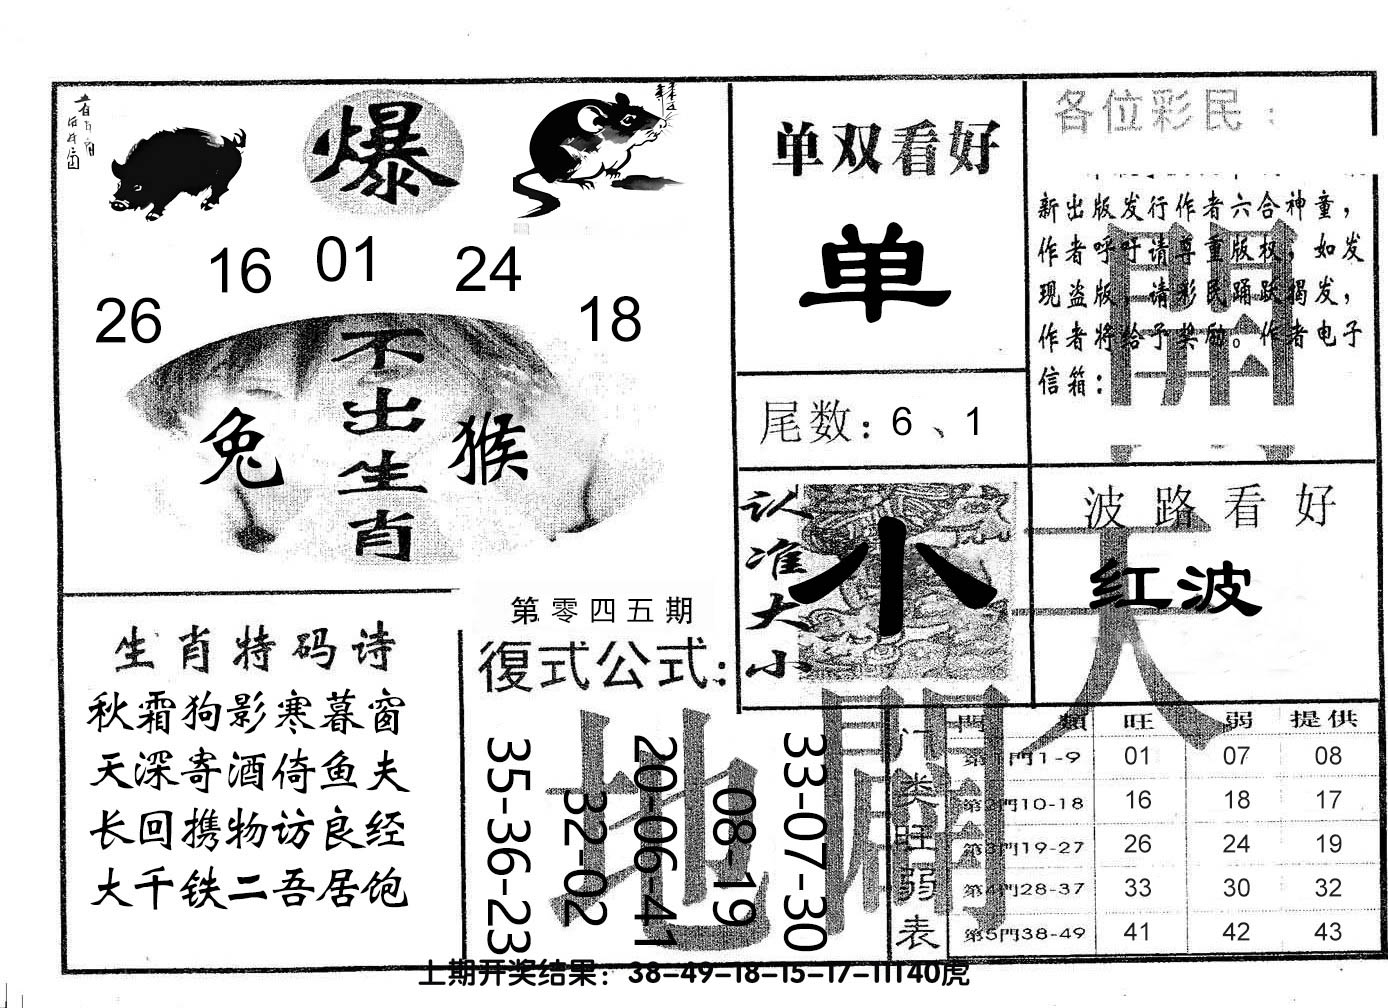 爆
16 01 24
26 18
不出生肖
兔 猴
生肖特码诗
秋霜狗影寒暮窗
天深寄酒倚鱼夫
长回携物访良经
大千铁二吾居饱
第零四五期
復式公式:
35-36-23
32-02
20-06-41
08-19
33-07-30
单双看好
单
尾数:6、1
认准大小
小
各位彩民:
新出版发行作者六合神童,
作者呼吁请尊重版权,如发
现盗版,请彩民踊跃揭发,
作者将给予奖励。作者电子
信箱:
波路看好
红波
天
地
開
门类旺弱表
門類 旺 弱 提供
第1門1-9 01 07 08
第2門10-18 16 18 17
第3門19-27 26 24 19
第4門28-37 33 30 32
第5門38-49 41 42 43
上期开奖结果:38-49-18-15-17-11T40虎